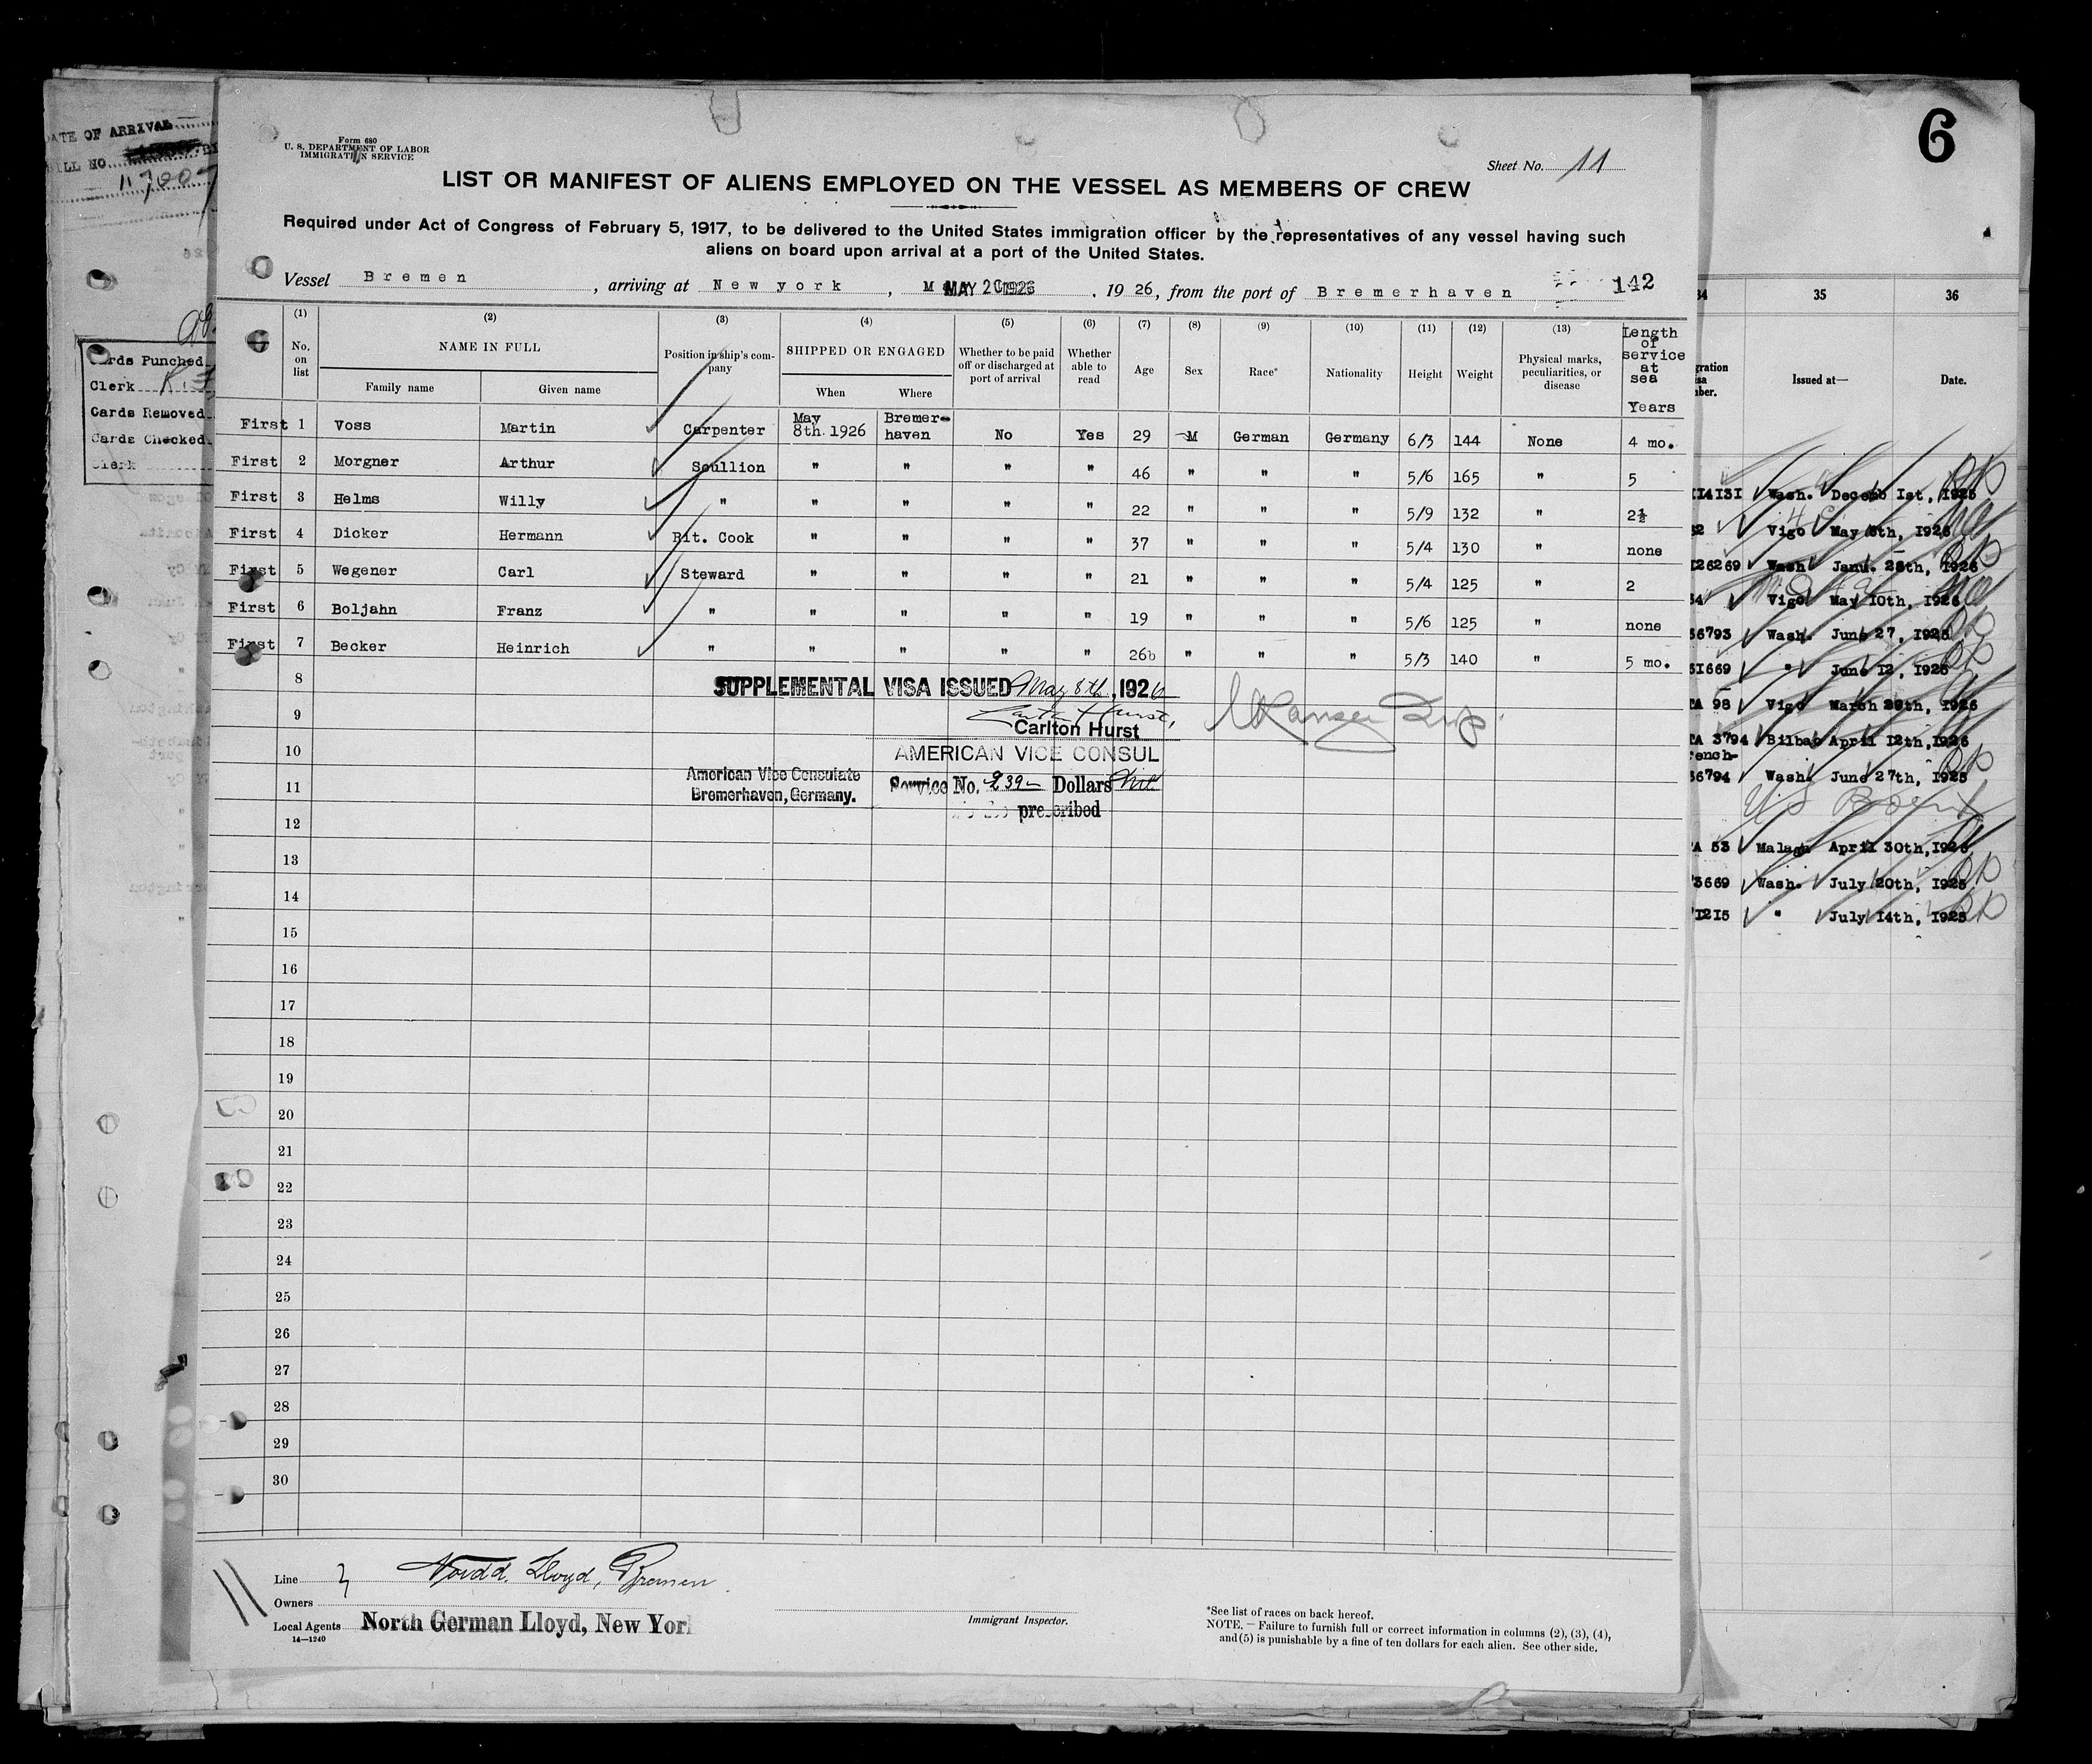 6
DATE OF ARRIVAL
Cards Punched
Clerk
Cards Removed
Cards Checked
Clerk
Form 680
U. S. DEPARTMENT OF LABOR
IMMIGRATION SERVICE
Sheet No. 11
LIST OR MANIFEST OF ALIENS EMPLOYED ON THE VESSEL AS MEMBERS OF CREW
Required under Act of Congress of February 5, 1917, to be delivered to the United States immigration officer by the representatives of any vessel having such
aliens on board upon arrival at a port of the United States.
Vessel Bremen, arriving at New york, MAY 20 1926, 1926, from the port of Bremerhaven 142
(1) (2) (3) (4) (5) (6) (7) (8) (9) (10) (11) (12) (13)
No. on list NAME IN FULL Family name Given name Position in ship's company SHIPPED OR ENGAGED When Where Whether to be paid off or discharged at port of arrival Whether able to read Age Sex Race* Nationality Height Weight Physical marks, peculiarities, or disease Length of service at sea Years
First 1 Voss Martin Carpenter May 8th. 1926 Bremer-haven No Yes 29 M German Germany 6/3 144 None 4 mo.
First 2 Morgner Arthur Scullion " " " " 46 " " " 5/6 165 " 5
First 3 Helms Willy " " " " " 22 " " " 5/9 132 " 2½
First 4 Dicker Hermann Rit. Cook " " " " 37 " " " 5/4 130 " none
First 5 Wegener Carl Steward " " " " 21 " " " 5/4 125 " 2
First 6 Boljahn Franz " " " " " 19 " " " 5/6 125 " none
First 7 Becker Heinrich " " " " " 26 " " " 5/3 140 " 5 mo.
8 SUPPLEMENTAL VISA ISSUED May 8th, 1926
9 Carlton Hurst,
Carlton Hurst
10 AMERICAN VICE CONSUL
American Vice Consulate
Bremerhaven, Germany.
11 Service No. 239 Dollars Nil
prescribed
12
13
14
15
16
17
18
19
20
21
22
23
24
25
26
27
28
29
30
11
Line Nordd. Lloyd, Bremen
Owners
Local Agents North German Lloyd, New Yor
14—1240
Immigrant Inspector.
*See list of races on back hereof.
NOTE.—Failure to furnish full or correct information in columns (2), (3), (4),
and (5) is punishable by a fine of ten dollars for each alien. See other side.
34 35 36
Issued at— Date.
114131 Wash. Decemb 1st, 1925
Vigo May 8th, 1926
126269 Wash Janu. 28th, 1926
Vigo May 10th, 1926
56793 Wash. June 27, 1925
61669 " June 12, 1925
TA 98 Vigo March 29th, 1926
TA 3794 Bilbao April 12th, 1926
56794 Wash. June 27th, 1925
TA 53 Malaga April 30th, 1926
73669 Wash. July 20th, 1925
71215 " July 14th, 1925